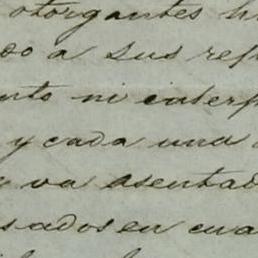 otorgantes h
do a sus ref
nto ni interp
y cada una
va asentad
sados en cua